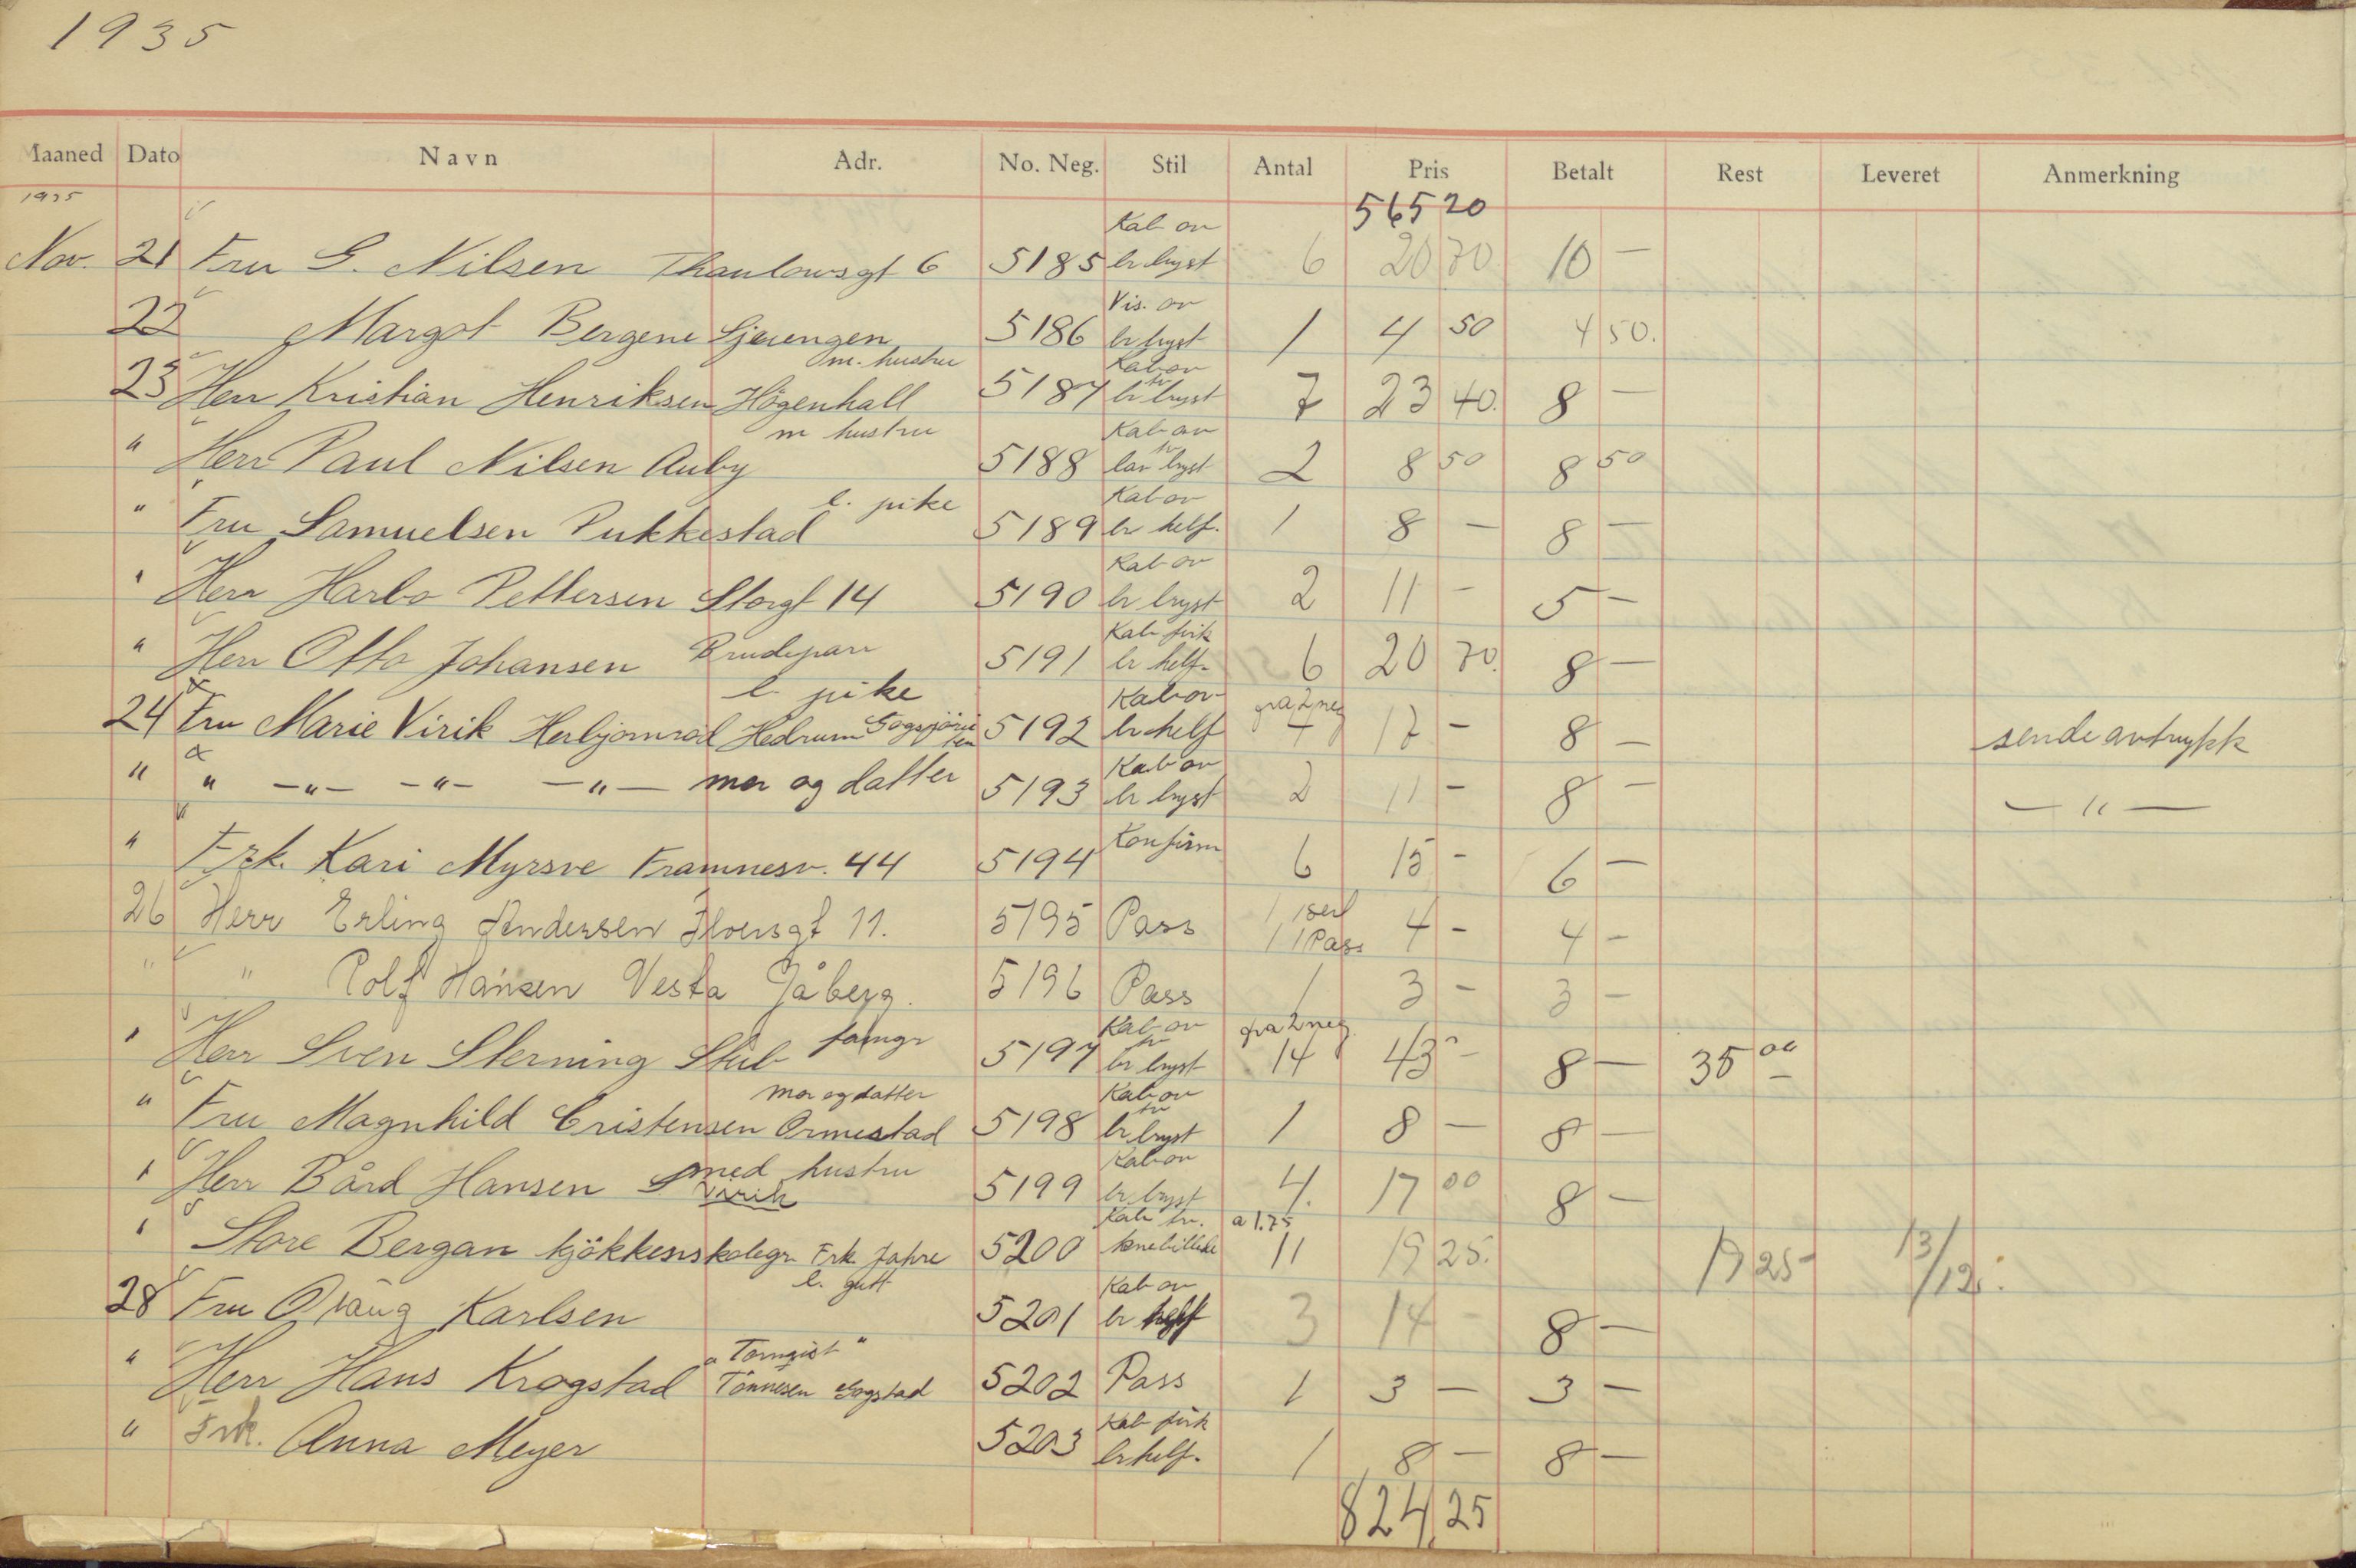 1935
Maaned Dato Navn Adr. No. Neg. Stil Antal Pris Betalt Rest Leveret Anmerkning
1935
565 20
Kab ov
Nov. 21 Fru G. Nilsen Thaulowsgt 6 5185 br bryst 6 20 70 10 —
Vis. ov
22 Margot Bergene 5186 br bryst 1 4 50 4 50.
m. hustru Kab ov
23 Herr Kristian Henriksen Högenhall 5187 br bryst 7 23 40. 8 —
m hustru Kab ov
" Herr Paul Nilsen Auby 5188 bryst 2 8 50 8 50
l. pike Kab ov
" Fru Samuelsen Pukkestad 5189 br helf. 1 8 — 8 —
Kab ov
" Herr Harbo Pettersen Storgt 14 5190 br bryst 2 11 - 5 —
Brudepar Kab firk
" Herr Otto Johansen 5191 br helf. 6 20 70. 8 —
l. pike Kab ov fra 2 neg
24 Fru Marie Virik Herbjörnröd Hedrum 5192 br helf 17 - 8 — sende avtrykk
Kab ov
" " —"— —"— —"— mor og datter 5193 br bryst 2 11 - 8 — — " —
" Frk. Kari Myrsve Framnesv. 44 5194 Konfirm 6 15 - 6 —
26 Herr Erling Andersen 11. 5195 Pass 1 Pass 4 - 4 -
" " Rolf Hansen Vesta Jåberg. 5196 Pass 1 3 - 3 -
Kab ov fra 2 neg
" Herr Sven Sterning Stub 5197 br bryst 14 43 - 8 — 35 00
mor og datter Kab ov
" Fru Magnhild Cristensen Ormestad 5198 br bryst 1 8 — 8 —
med hustru Kab ov
" Herr Bård Hansen Virik 5199 br bryst 4. 17 00 8 —
Kab br. a 1.75
" Store Bergan kjökkenskolegr. Frk. Jahre 5200 knebillede 11 19 25. 19 25 - 13/12.
l. gutt Kab ov
28 Fru Karlsen 5201 br helf 3 14 - 8 —
" Tornqist "
" Herr Hans Krogstad Tönnesen 5202 Pass 1 3 — 3 —
Kab firk
" Frk. Anna Meyer 5203 br helf. 1 8 — 8 —
824,25